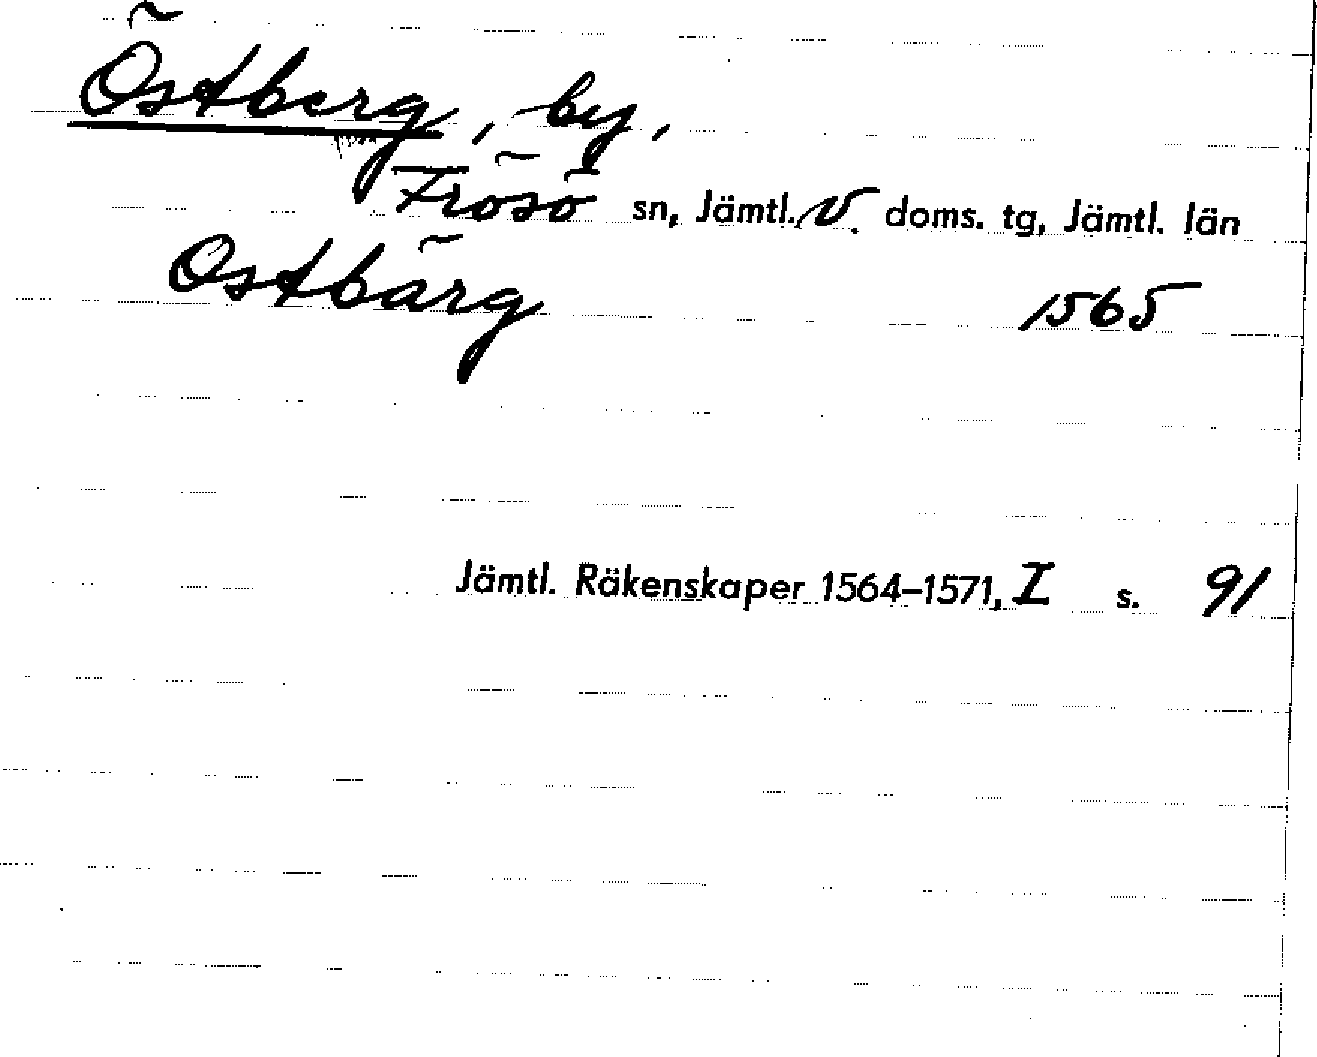 Östberg, by,
Frösö sn, Jämtl. V. doms. tg, Jämtl. län
Ostbärg 1565
Jämtl. Räkenskaper 1564–1571, I s. 91